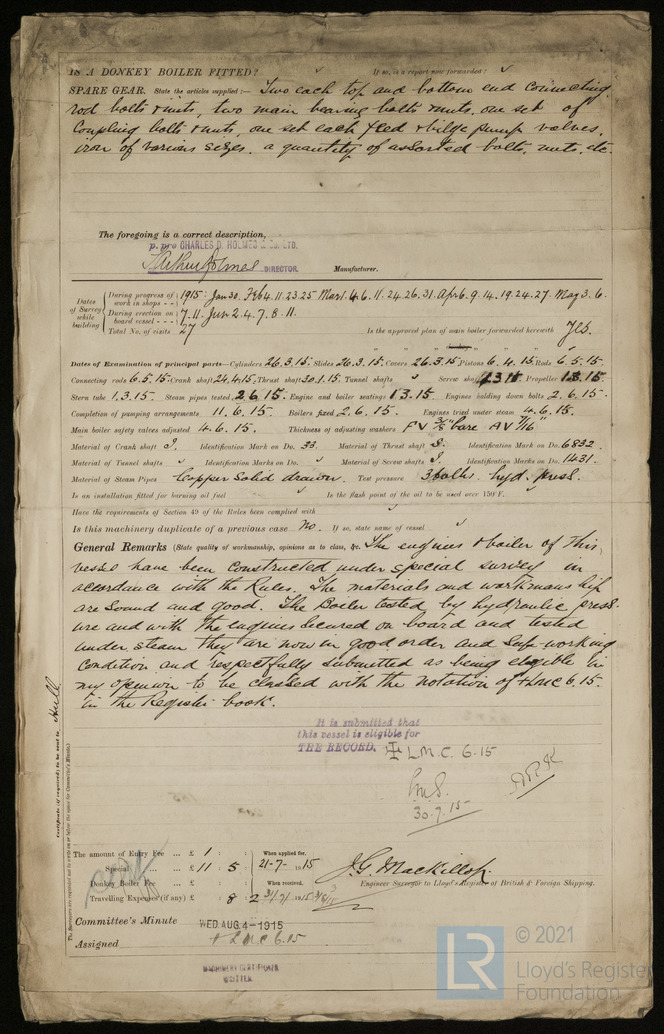 Is A DONKEY BOILER FITTED? If so, is a report now forwarded?
SPARE GEAR. State the articles supplied:— Two each top and bottom end connecting
rod bolts & nuts, two main bearing bolts & nuts, one set of
Coupling bolts & nuts, one set each feed & bilge pump valves,
iron of various sizes, a quantity of assorted bolts, nuts, etc.
The foregoing is a correct description,
p. pro CHARLES D. HOLMES & Co. LTD.
Arthur Holmes DIRECTOR. Manufacturer.
Dates of Survey while building
During progress of work in shops - - 1915: Jan 30. Feb 4. 11. 23. 25 Mar 1. 4. 6. 11. 24. 26. 31. Apr 6. 9. 14. 19. 24. 27. May 3. 6.
During erection on board vessel - - - 7. 11. Jun 2. 4. 7. 8. 11.
Total No. of visits 27 Is the approved plan of main boiler forwarded herewith Yes.
" " " donkey " " "
Dates of Examination of principal parts—Cylinders 26.3.15. Slides 26.3.15. Covers 26.3.15 Pistons 6.4.15. Rods 6.5.15.
Connecting rods 6.5.15. Crank shaft 24.4.15. Thrust shaft 30.1.15. Tunnel shafts Screw shaft 1.3.15. Propeller 1.3.15.
Stern tube 1.3.15. Steam pipes tested 2.6.15. Engine and boiler seatings 1.3.15. Engines holding down bolts 2.6.15.
Completion of pumping arrangements 11.6.15. Boilers fixed 2.6.15. Engines tried under steam 4.6.15.
Main boiler safety valves adjusted 4.6.15. Thickness of adjusting washers FV 3/8" bare AV 7/16"
Material of Crank shaft I. Identification Mark on Do. 33. Material of Thrust shaft S. Identification Mark on Do. 6832
Material of Tunnel shafts Identification Marks on Do. Material of Screw shafts I. Identification Marks on Do. 1431.
Material of Steam Pipes Copper solid drawn. Test pressure 360 lbs. hyd. press.
Is an installation fitted for burning oil fuel Is the flash point of the oil to be used over 150°F.
Have the requirements of Section 49 of the Rules been complied with
Is this machinery duplicate of a previous case No. If so, state name of vessel
General Remarks (State quality of workmanship, opinions as to class, &c. The engines & boiler of this
vessel have been constructed under special survey in
accordance with the Rules. The materials and workmanship
are sound and good. The Boiler tested by hydraulic press-
ure and with the engines secured on board and tested
under steam they are now in good order and safe working
condition and respectfully submitted as being eligible in
my opinion to be classed with the notation of + LMC 6.15.
in the Register book.
It is submitted that
this vessel is eligible for
THE RECORD. + L.M.C. 6.15
30.7.15
Certificate (if required) to be sent to Hull
The amount of Entry Fee ... £ 1 : : When applied for,
Special ... ... £ 11 : 5 : 21-7-1915
Donkey Boiler Fee ... £ : : When received,
Travelling Expenses (if any) £ : 8 : 2
J.G. Mackillop
Engineer Surveyor to Lloyd's Register of British & Foreign Shipping.
Committee's Minute WED. AUG. 4 - 1915
Assigned + L.M.C. 6.15
MACHINERY CERTIFICATE
WRITTEN.
LR © 2021
Lloyd's Register
Foundation